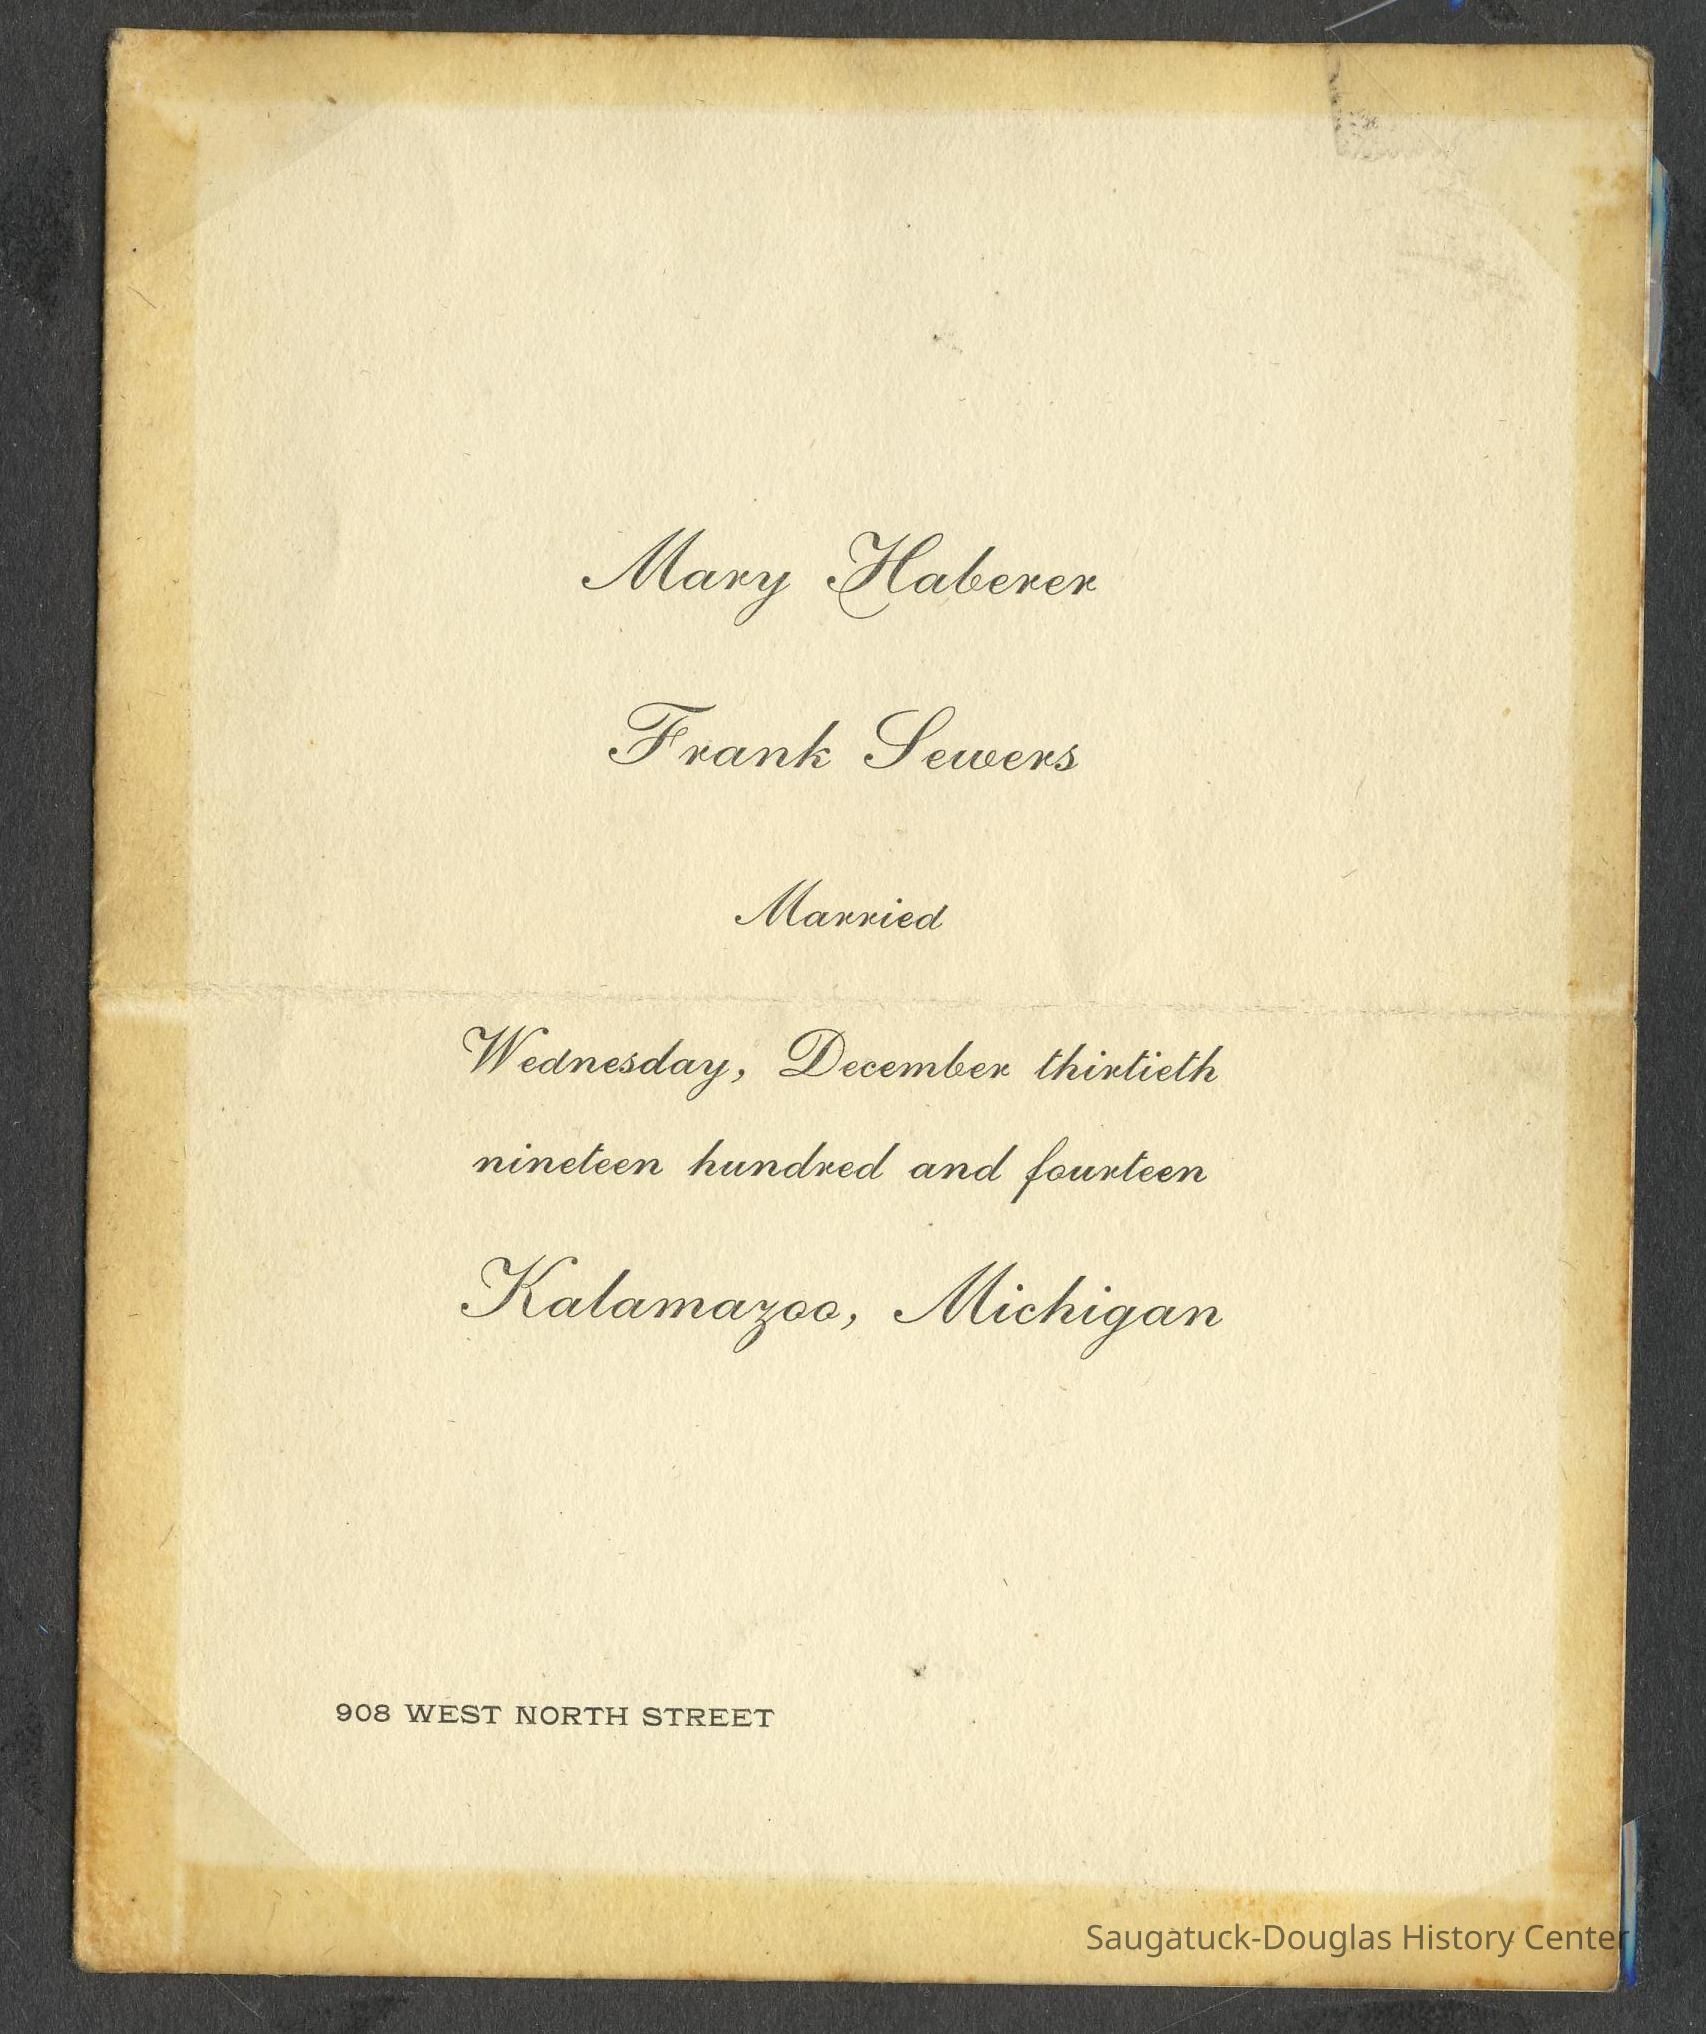 Mary Haberer
Frank Sewers
Married
Wednesday, December thirtieth
nineteen hundred and fourteen
Kalamazoo, Michigan
908 WEST NORTH STREET
Saugatuck-Douglas History Center